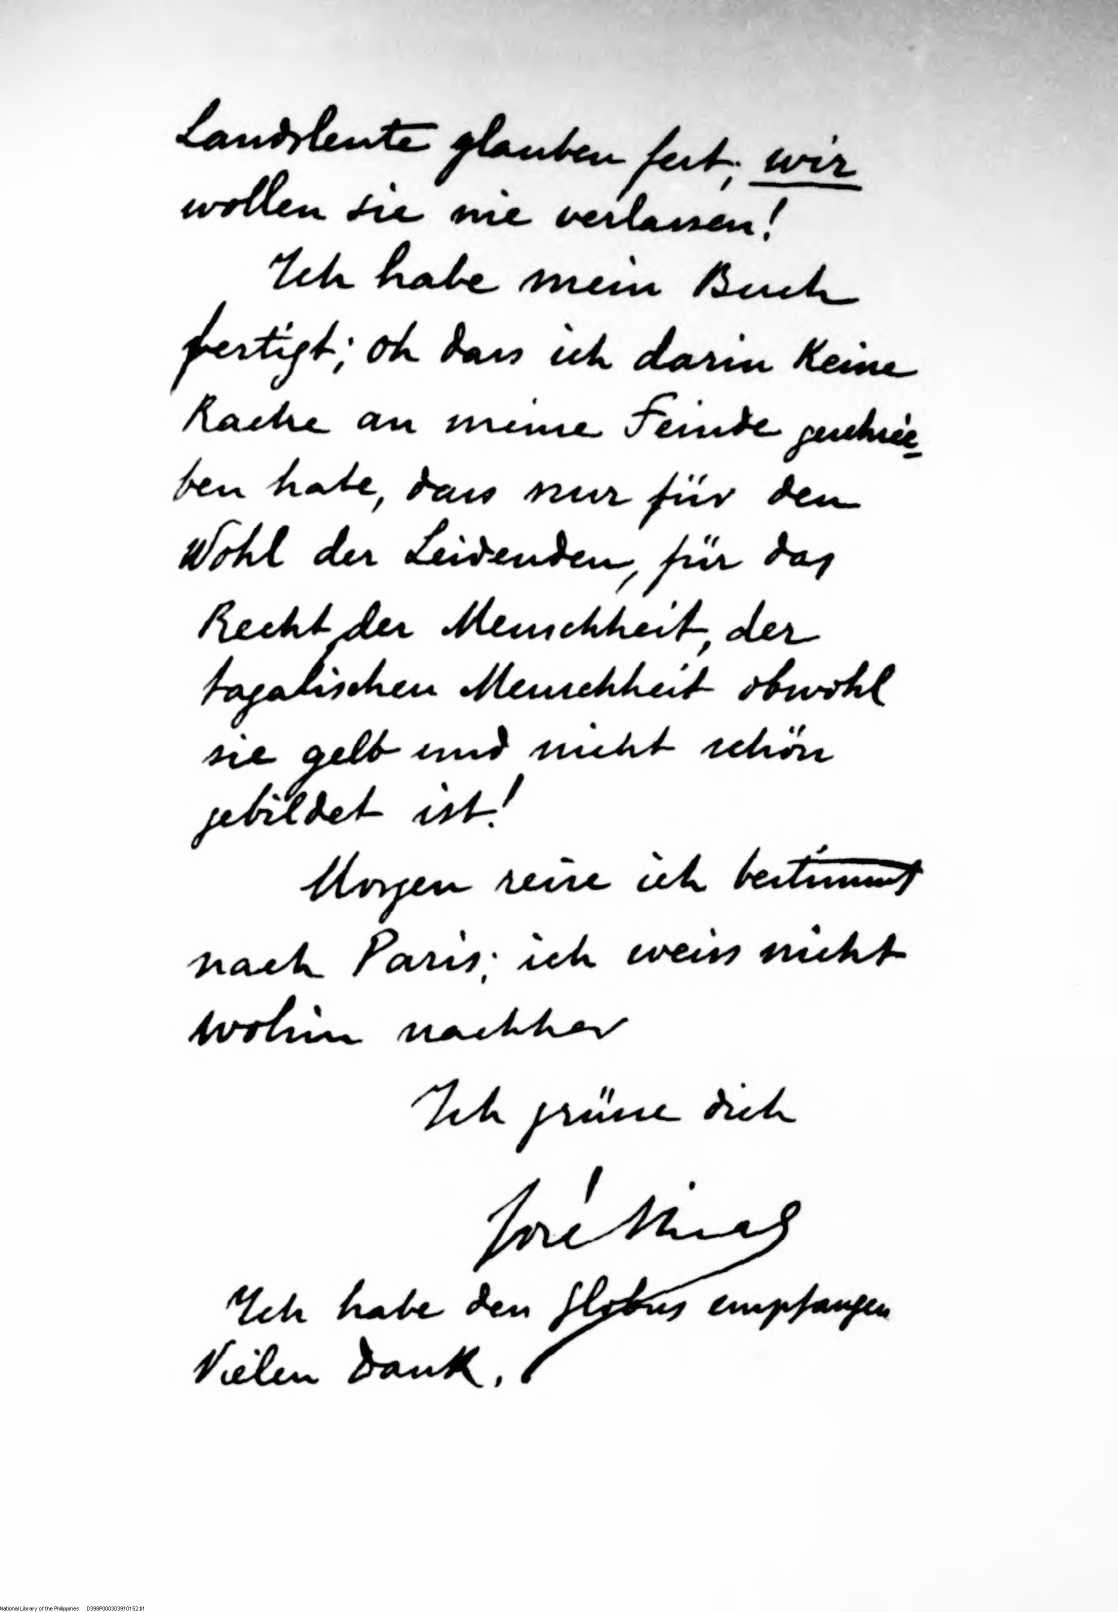 Landsleute glauben fest; wir
wollen sie nie verlassen!
Ich habe mein Buch
fertigt; oh dass ich darin keine
Rache an meine Feinde geschrie-
ben habe, dass nur für den
Wohl der Leidenden, für das
Recht der Menschheit, der
tagalischen Menschheit obwohl
sie gelb und nicht schön
gebildet ist!
Morgen reise ich bestimmt
nach Paris; ich weiss nicht
wohin nachher
Ich grüsse dich
José Rizal
Ich habe den Globus empfangen
Vielen Dank.
National Library of the Philippines D398P000303910152.tif